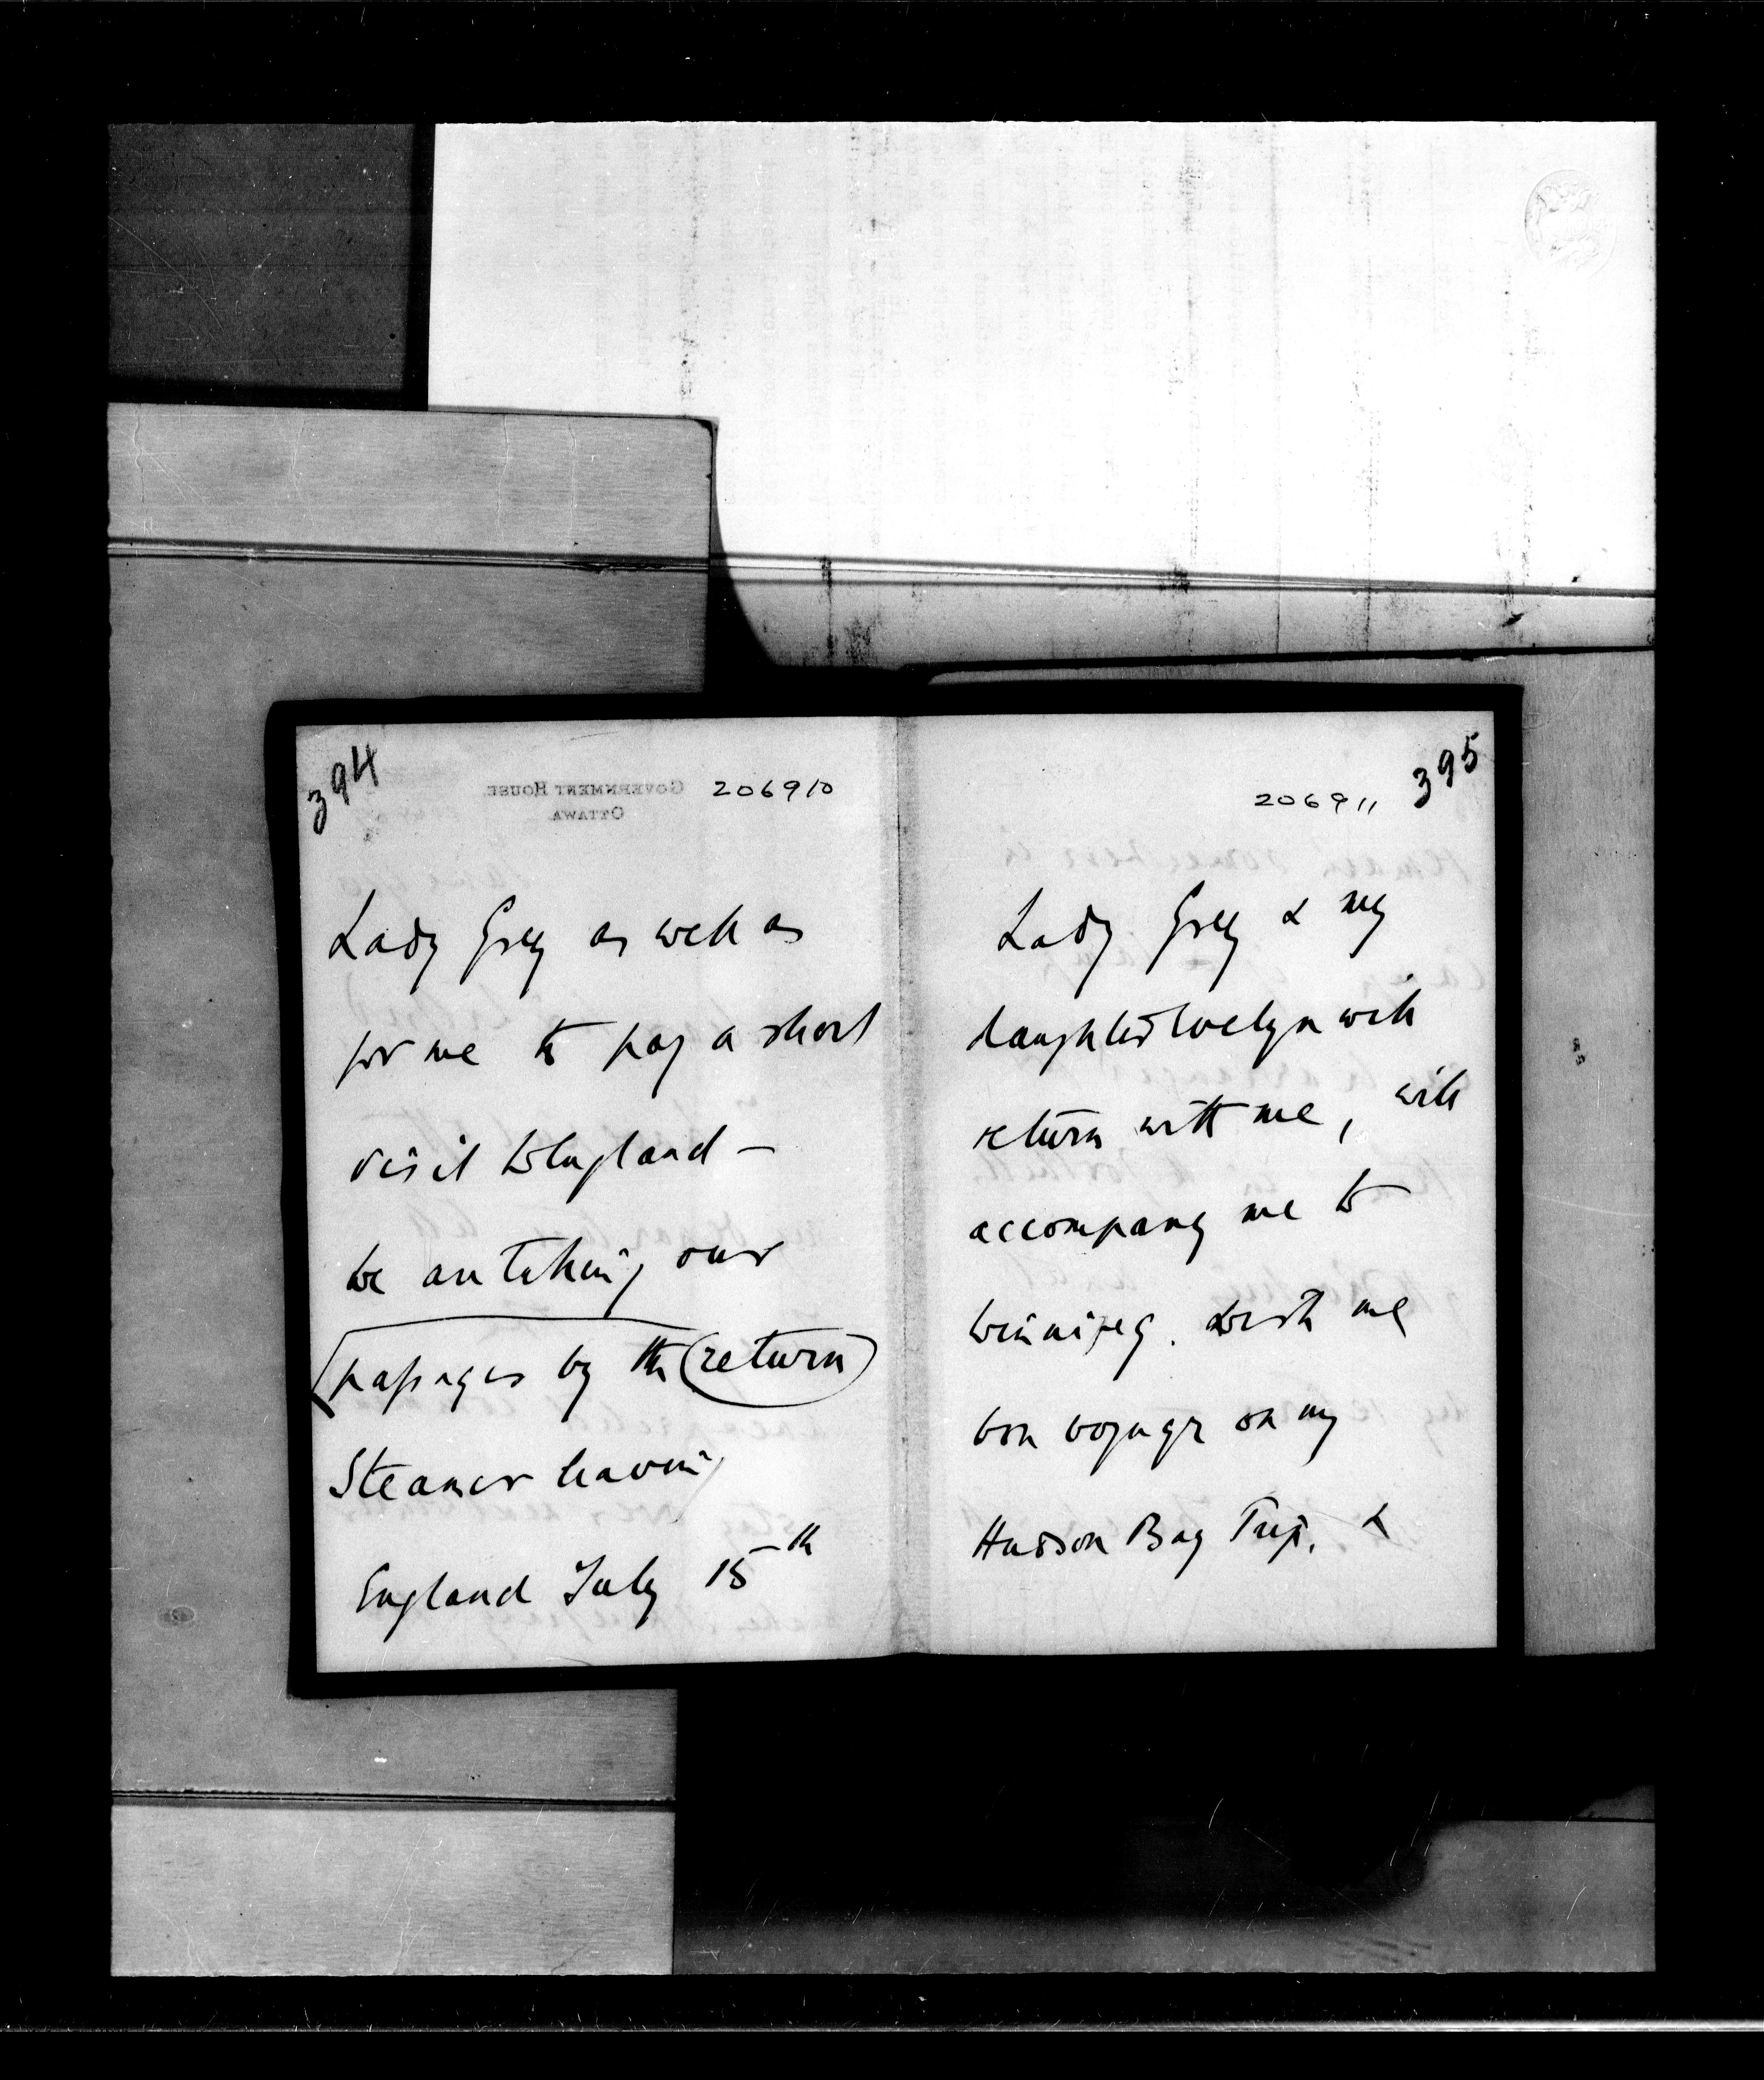 394
GOVERNMENT HOUSE.
OTTAWA.
206910
Lady Grey as well as
for me to pay a short
visit to England —
We are taking our
passages by the return
Steamer leaving
England July 15th
395
206911
Lady Grey & my
daughter Evelyn will
return with me, will
accompany me to
Winnipeg. wish me
bon voyage on my
Hudson Bay Trip, &